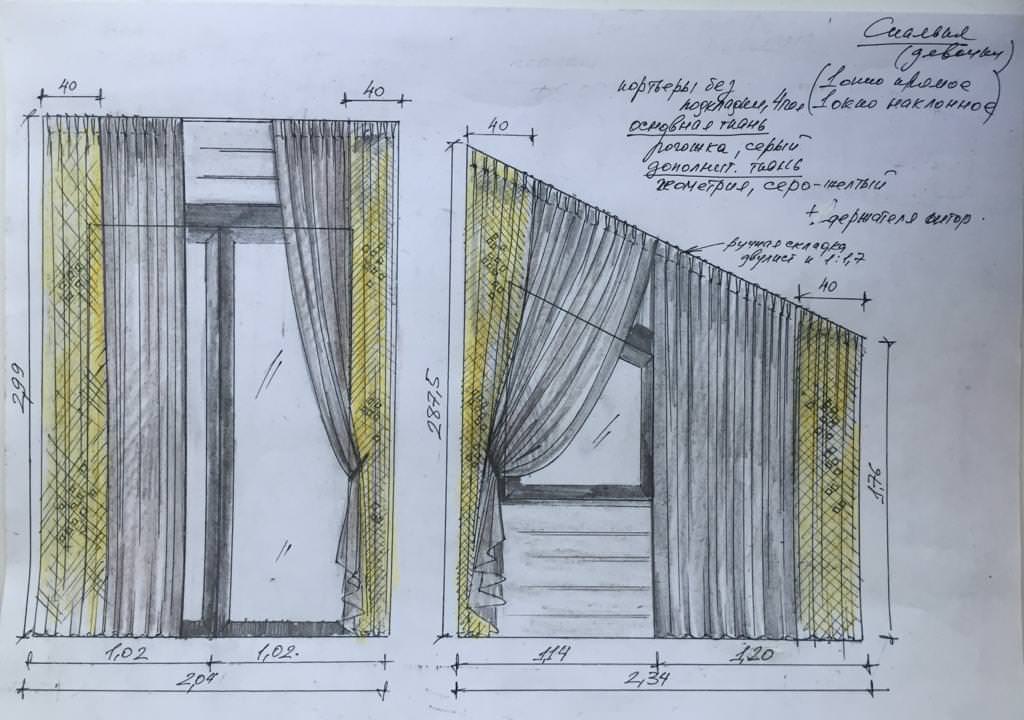 Спальня
(девочки)
(1 окно прямое
1 окно наклонное)
портьеры без
подкладки, 4 пол.
основная ткань
рогожка, серый
дополнит. ткань
геометрия, серо-желтый
+ держателя штор.
ручная складка
1:1,7
40
40
40
40
2,99
287,5
1,76
1,02
1,02.
2,04
1,14
1,20
2,34